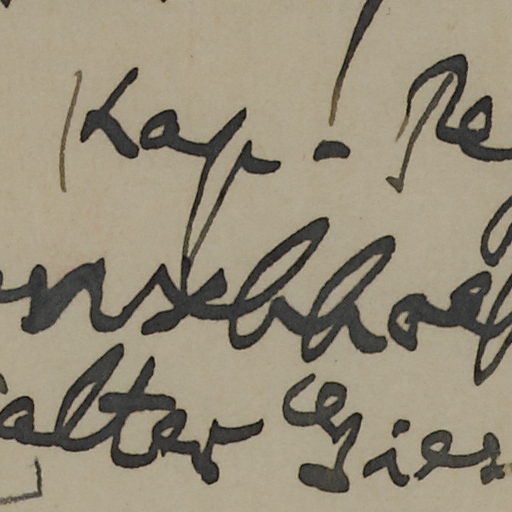 Kap. - Re
enschhoef
alter Gies